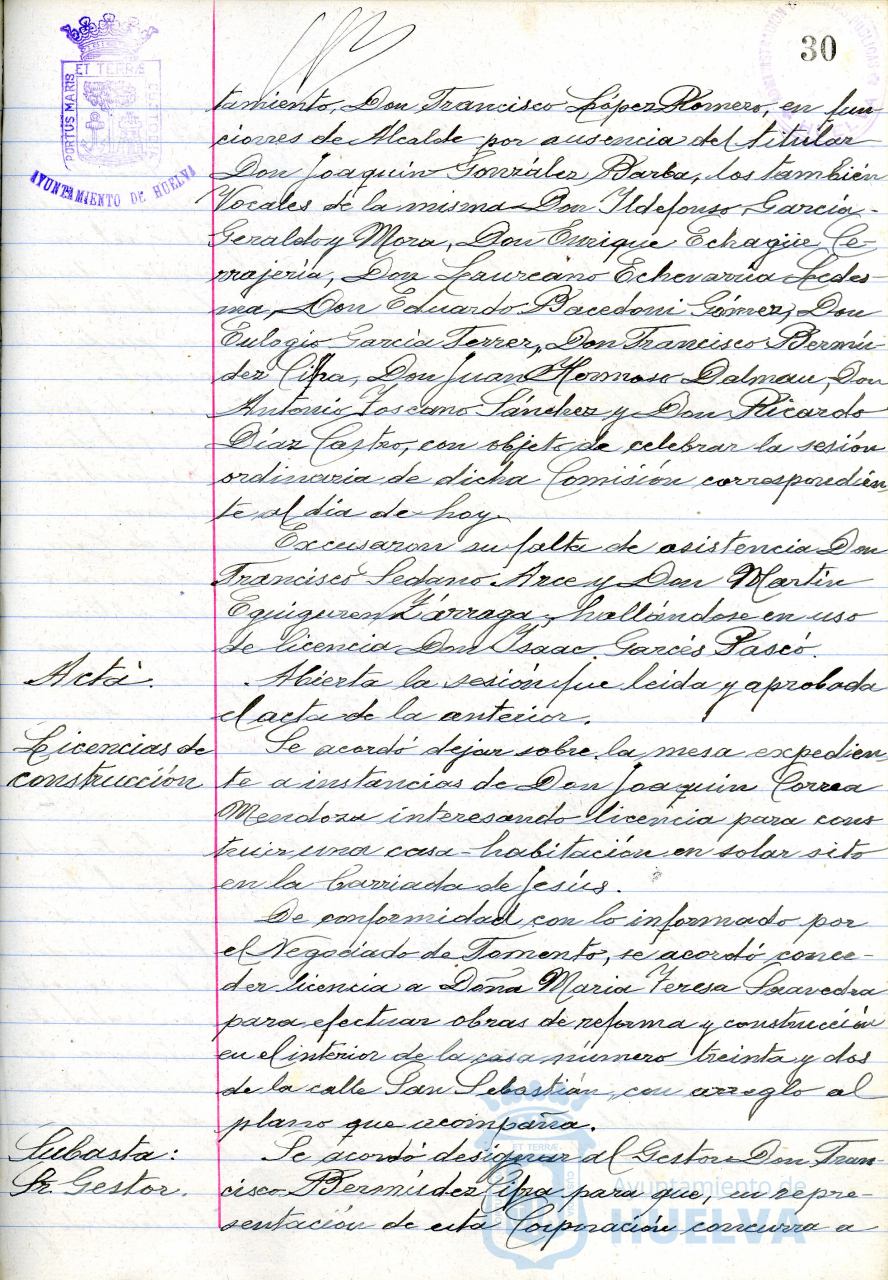 30
PORTUS MARIS
ET TERRÆ
CUSTODIA
AYUNTAMIENTO DE HUELVA
tamiento, Don Francisco López Romero, en fun-
ciones de Alcalde por ausencia del titular
Don Joaquín González Barba, los también
Vocales de la misma Don Ildefonso García-
Geraldo y Mora, Don Enrique Echagüe Ce-
rrajería, Don Laureano Echevarría Ledes-
ma, Don Eduardo Bacedoni Gómez, Don
Eulogio García Ferrer, Don Francisco Bermú-
dez Cifra, Don Juan Hermoso Dalmau, Don
Antonio Toscano Sánchez y Don Ricardo
Díaz Castro, con objeto de celebrar la sesión
ordinaria de dicha Comisión correspondien-
te al día de hoy.
Excusaron su falta de asistencia Don
Francisco Sedano Arce y Don Martín
Eguiguren Zárraga, hallándose en uso
de licencia Don Isaac Garcés Pascó.
Acta.
Abierta la sesión fue leida y aprobada
el acta de la anterior.
Licencias de
construcción
Se acordó dejar sobre la mesa expedien-
te a instancias de Don Joaquín Correa
Mendoza interesando licencia para cons-
truir una casa-habitación en solar sito
en la barriada de Jesús.
De conformidad con lo informado por
el Negociado de Fomento, se acordó conce-
der licencia a Doña Maria Teresa Saavedra
para efectuar obras de reforma y construcción
en el interior de la casa número treinta y dos
de la calle San Sebastián, con arreglo al
plano que acompaña.
Subasta:
Sr. Gestor.
Se acordó designar al Gestor Don Fran-
cisco Bermúdez Cifra para que, en repre-
sentación de esta Corporación concurra a
ET TERRÆ
Ayuntamiento de
HUELVA